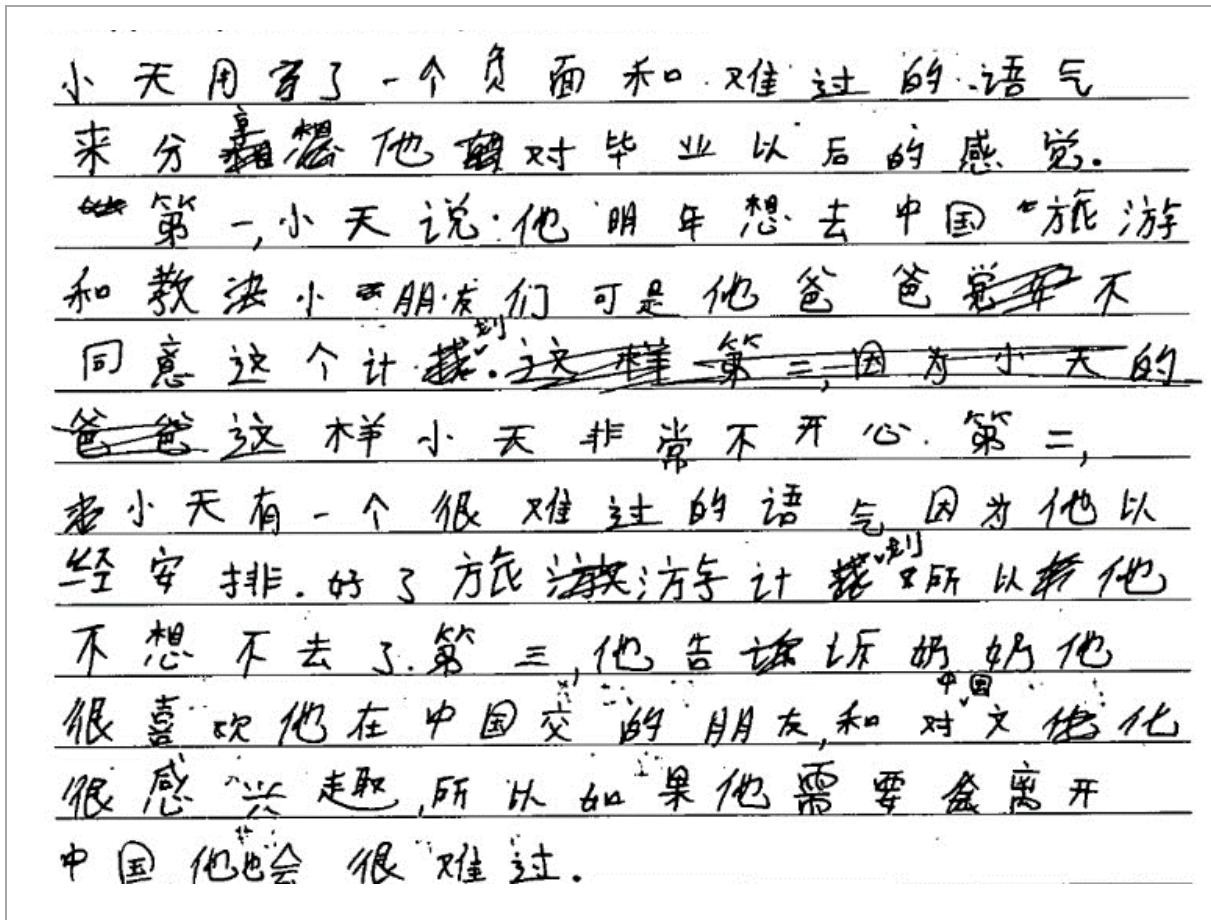 小天用了一个负面和难过的语气
来分享他对毕业以后的感觉.
第一,小天说他明年想去中国旅游
和教小朋友们可是他爸爸不
同意这个计划.
这样小天非常不开心.第二,
小天有一个很难过的语气因为他以
经安排.好了旅游计划所以他
不想不去了.第三,他告诉奶奶他
很喜欢他在中国交的朋友,和对中国文化
很感兴趣,所以如果他需要离开
中国他也会很难过.